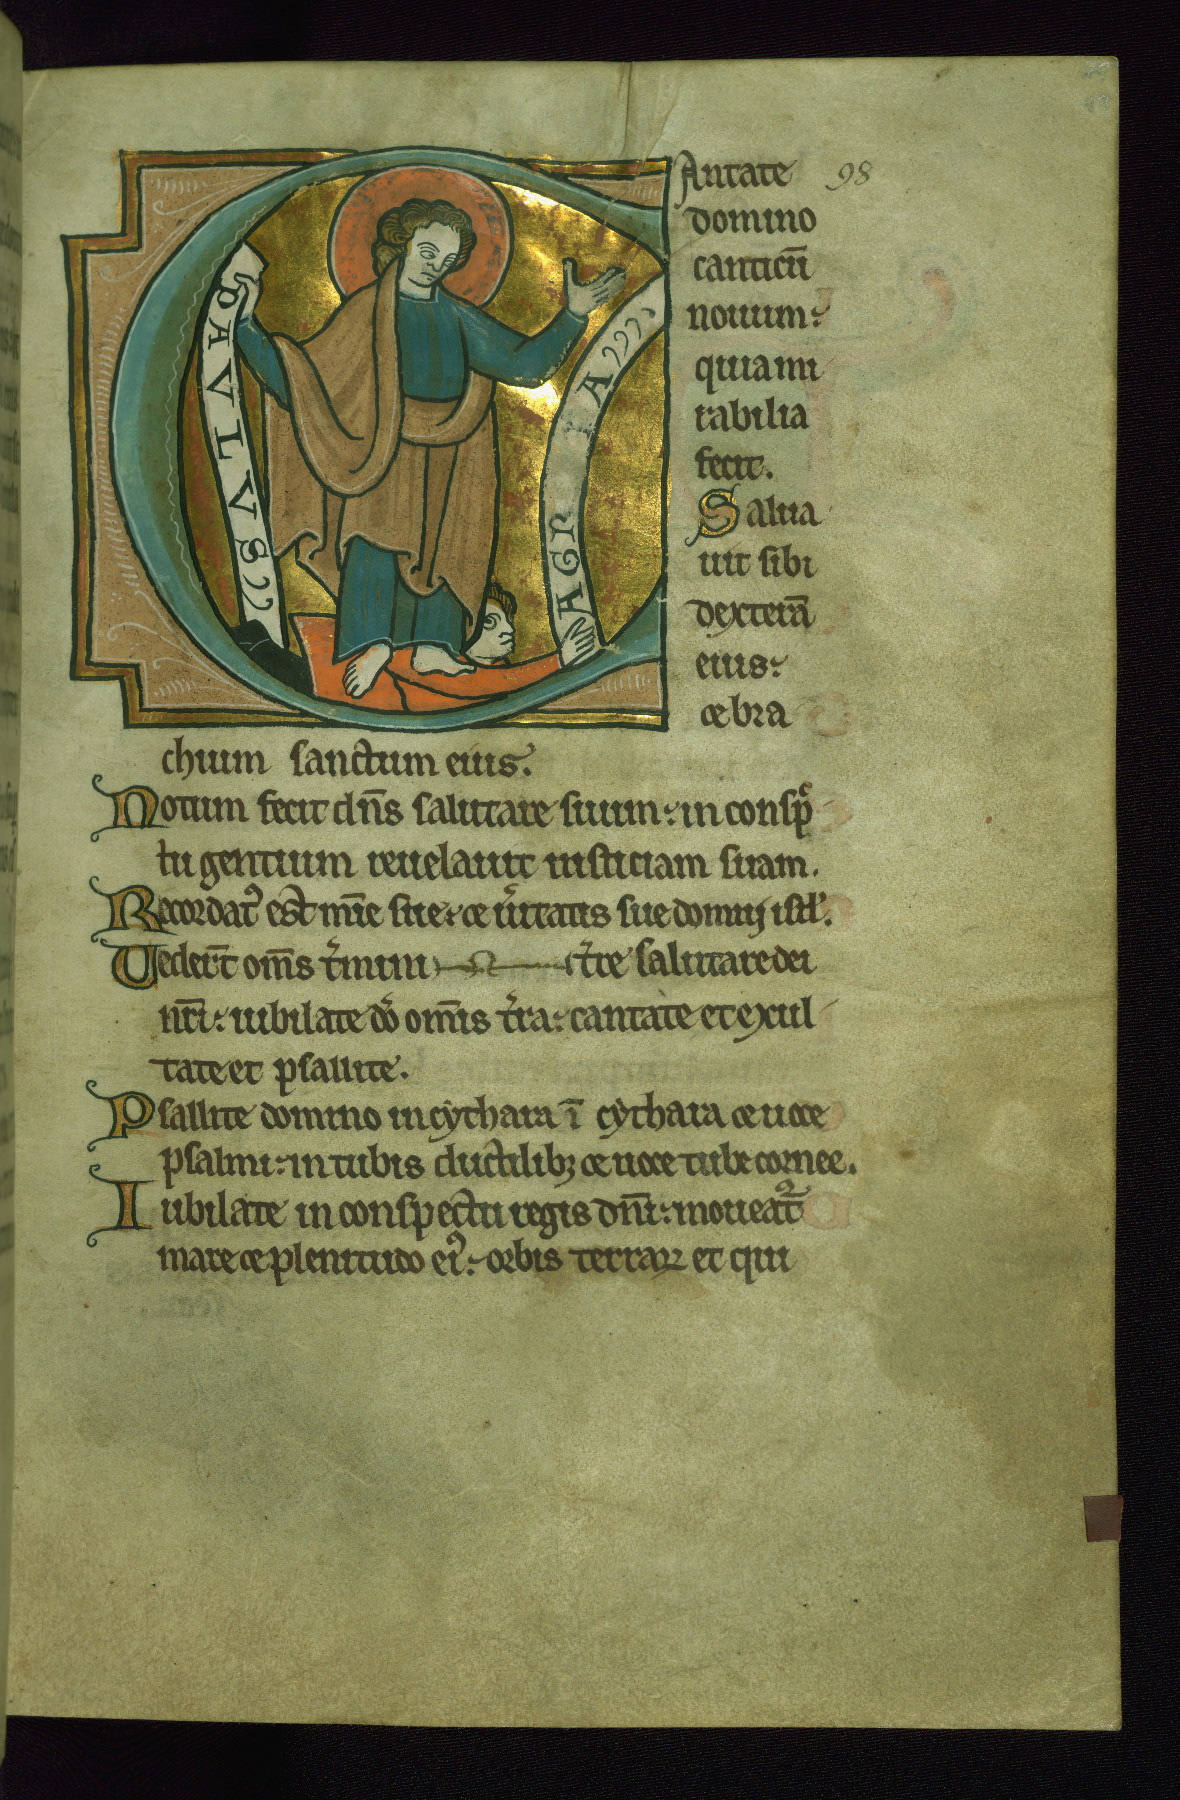 PAVLVS
AGR A
CAntate 98
domino
canticū
nouum:
quia mi
rabilia
fecit.
Salua
uit sibi
dexterā
eius:
et bra
chium sanctum eius.
Notum fecit dn̄s salutare suum: in conspec
tu gentium reuelauit iusticiam suam.
Recordat᷒ est mīe sue: et ũitatis sue domui isrl̕.
Viderūt om̄s t̃mini t̃re salutare dei
nr̄i: iubilate dō omnis t̃ra: cantate et exul
tate et psallite.
Psallite domino in cythara ī cythara et uoce
psalmi: in tubis ductilib; et uoce tube cornee.
Iubilate in conspectu regis dn̄i: moueat᷑
mare et plenitudo ei᷒: orbis terraꝝ et qui